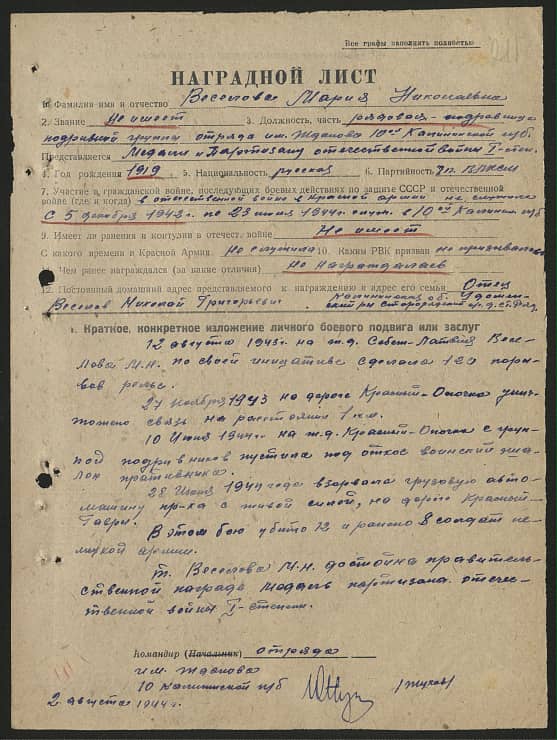 Все графы заполнять полностью
НАГРАДНОЙ ЛИСТ
1. Фамилия имя и отчество Веселова Мария Николаевна
2. Звание Не имеет 3. Должность, часть рядовая - подрывница
подрывной группы отряда им. Жданова 10ой Калининской п/б
Представляется Медали „Партизану отечественной войны" I-степ.
4. Год рождения 1919 5. Национальность русская 6. Партийность чл. ВЛКСМ
7. Участие в гражданской войне, последующих боевых действиях по защите СССР и отечественной
войне (где и когда) в отечественной войне в Красной армии не служила
С 5 декабря 1942г. по 23 июля 1944г. в 10ой Калинин. п/б
9. Имеет ли ранения и контузии в отечеств войне Не имеет
С какого времени в Красной Армии Не служила 10. Каким РВК призван не призывалась
Чем ранее награждался (за какие отличия) Не награждалась
12. Постоянный домашний адрес представляемого к награждению и адрес его семьи Отец
Веселов Николай Григорьевич Калининская об. Удомель-
ский р-н
I. Краткое, конкретное изложение личного боевого подвига или заслуг
12 августа 1943г. на ж.д. Себеж-Латвия Весе-
лова М.Н. по своей инициативе сделала 120 поры-
вов рельс.
27 ноября 1943 на дороге Красный-Опочка унич-
тожено связь на расстоянии 1 км.
10 Июня 1944г. на ж.д. Красный-Опочка с груп-
пой подрывников пустила под откос воинский эше-
лон противника.
28 Июня 1944 года взорвала грузовую авто-
машину пр-ка с живой силой, на дороге Красный-
Гавры.
В этом бою убито 12 и ранено 8 солдат не-
мецкой армии.
т. Веселова М.Н. достойна правитель-
ственной награде Медаль партизана отече-
ственной войны I-степени.
Командир (Начальник) отряда
им. Жданова
10 Калининской п/б
/Жуков/
2 августа 1944г.